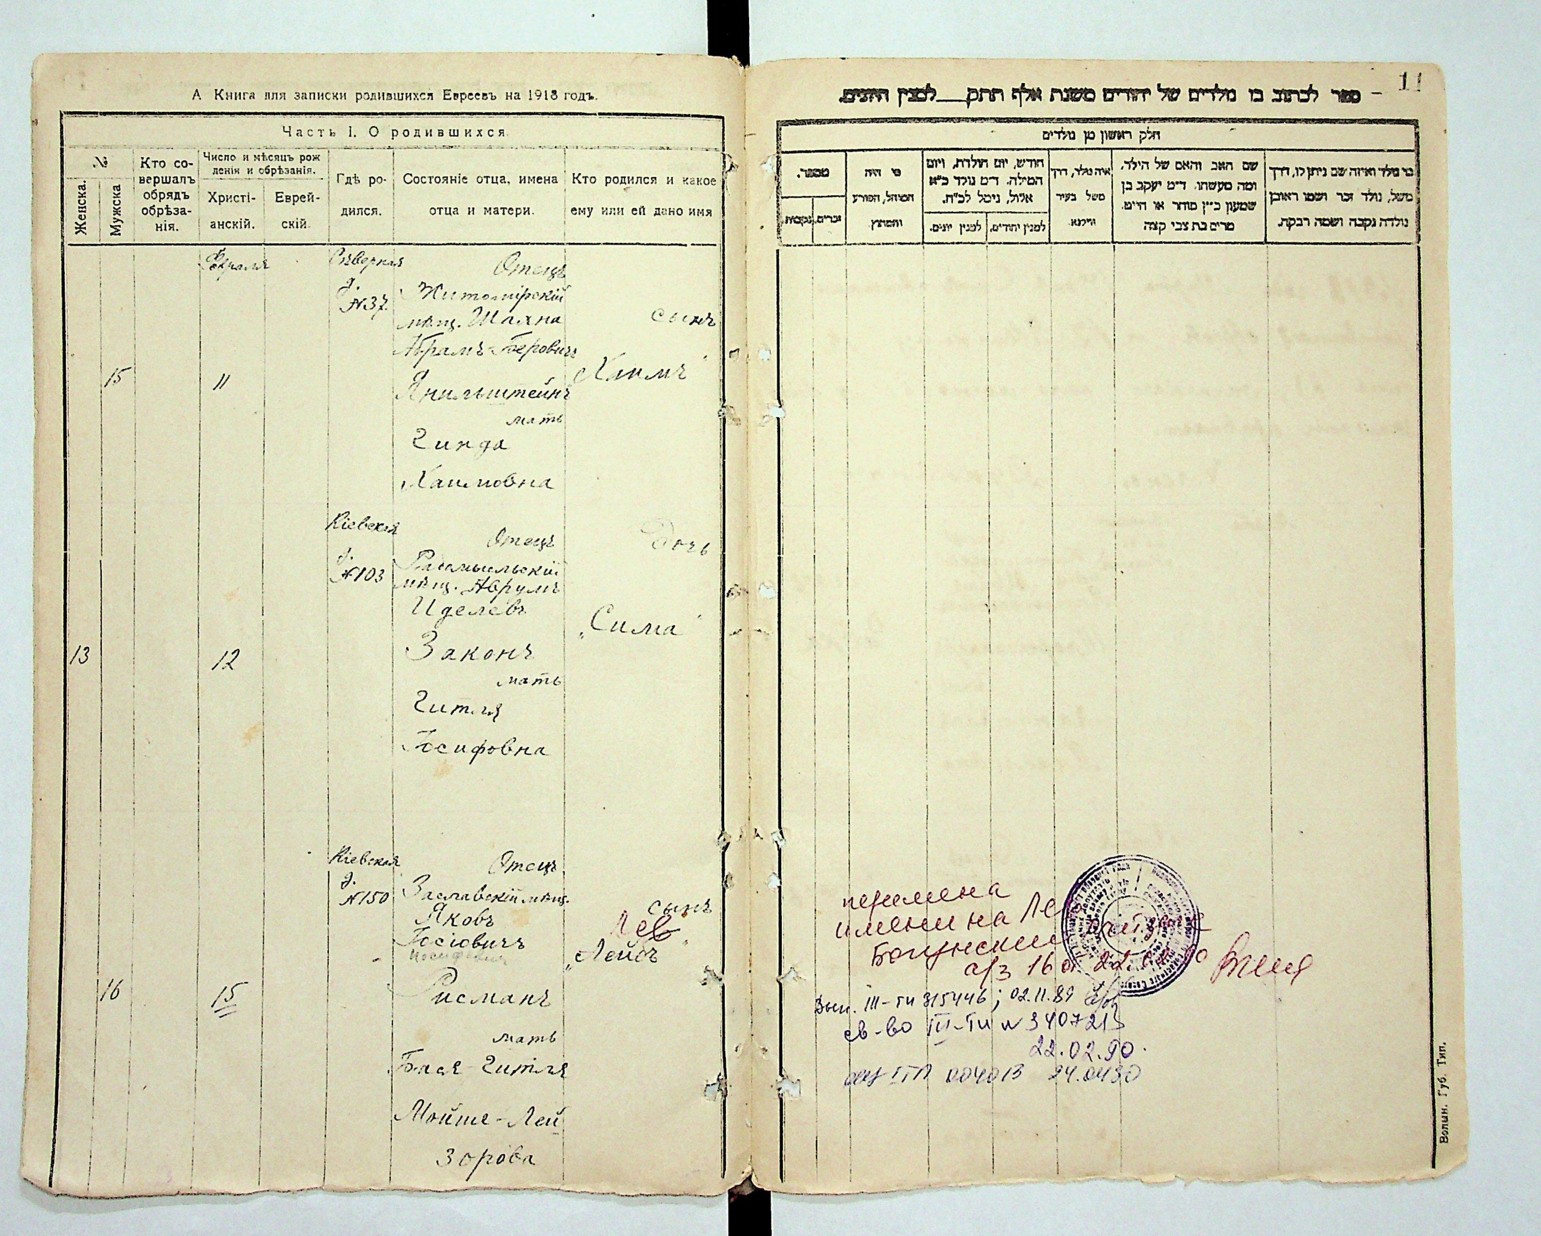 А Книга для записки родившихся Евреевъ на 1918 годъ.
Часть I. О родившихся
№
Женска.
Мужска
Кто со-
вершалъ
обрядъ
обрѣза-
нія.
Число и мѣсяцъ рож
денія и обрѣзанія.
Христі-
анскій.
Еврей-
скій.
Гдѣ ро-
дился.
Состояніе отца, имена
отца и матери.
Кто родился и какое
ему или ей дано имя
Февраля
15
11
Сѣверная
д.
№37.
Отецъ
Житомірскій
мѣщ. Шахна
Абрамъ-Беровичъ
Янильштейнъ
мать
Гинда
Хаимовна
сынъ
„Хаимъ"
13
12
Кіевская
д.
№103
Отецъ
мѣщ. Аврумъ
Иделевъ
Законъ
мать
Гитля
Іосифовна
Дочь
„Сима"
16
15
Кіевская
д.
№150
Отецъ
Заславскій мѣщ.
Яковъ
Іосіовичъ
Иосифович
Рисманъ
мать
Бася-Гитля
Мошке-Лей
зорова
сынъ
Лев
„Лейбъ"
11
ספר לכתוב בו נולדים של יהודים משנת אלף תתק__למנין היונים.
חלק ראשון מן נולדים
מספר.
נקבות.
זכרים.
מי היה
המוהל, הפורע
והמוצץ
חודש, יום הולדת, ויום
המילה. ד״מ נולד כ״א
אלול, נימל לכ״ח.
למנין יונים.
למנין יהודים.
איה נולד, דרך
משל בעיר
ווילנא
שם האב והאם של הילד.
ומה מעשהו. ד״מ יעקב בן
שמעון כ״ץ סוחר או חייט.
מרים בת צבי קצה
מי נולד ואיזה שם ניתן לו, דרך
משל, נולד זכר ושמו ראובן
נולדה נקבה ושמה רבקה.
перемена
имени на Ле
Богунский
а/з 16 от 22.02.90
Вып. III-ти 315446; 02.11.89
св-во III-ти № 340721
22.02.90.
004013 24.04.90
Волын. Губ. Тип.